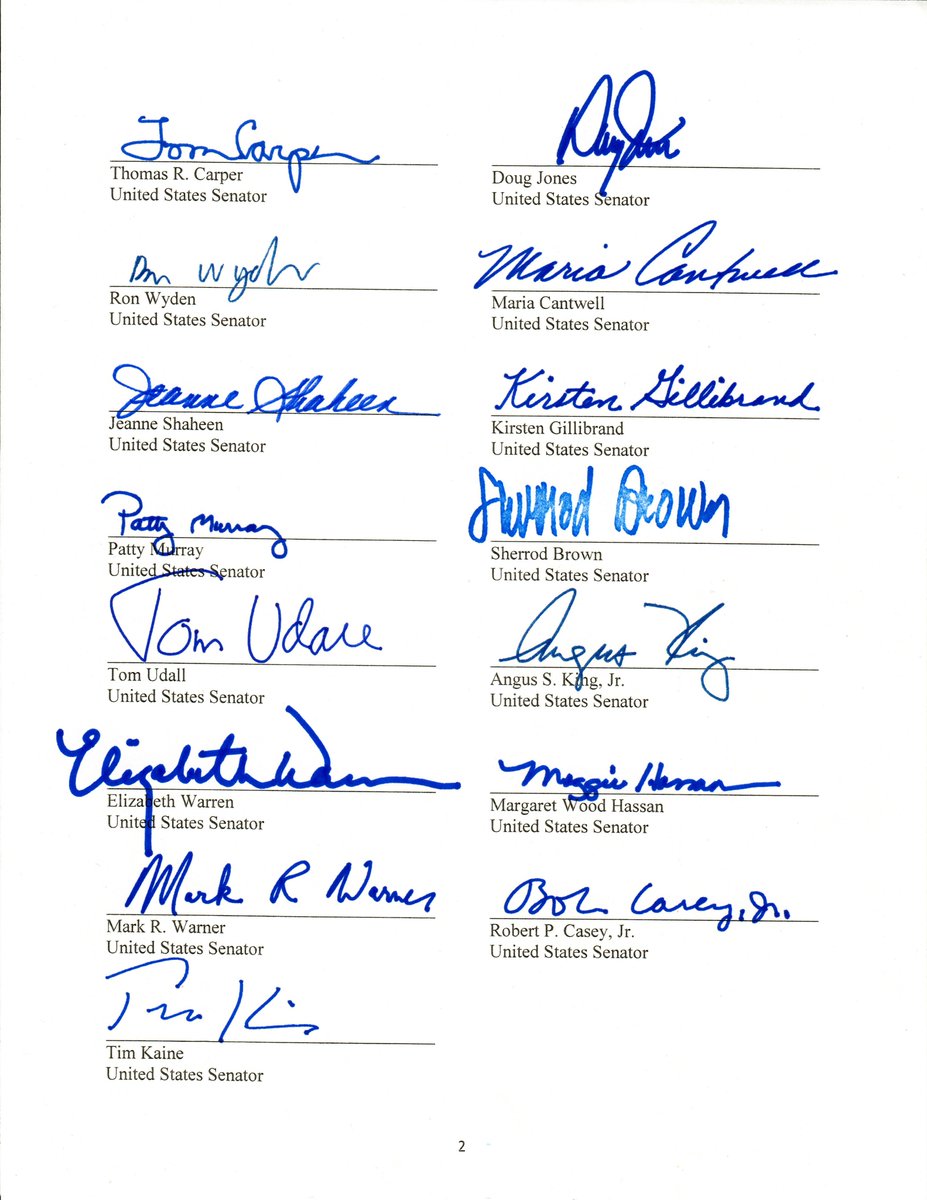 Tom Carper
Thomas R. Carper
United States Senator
Doug Jones
Doug Jones
United States Senator
Ron Wyden
Ron Wyden
United States Senator
Maria Cantwell
Maria Cantwell
United States Senator
Jeanne Shaheen
Jeanne Shaheen
United States Senator
Kirsten Gillibrand
Kirsten Gillibrand
United States Senator
Patty Murray
Patty Murray
United States Senator
Sherrod Brown
Sherrod Brown
United States Senator
Tom Udall
Tom Udall
United States Senator
Angus King
Angus S. King, Jr.
United States Senator
Elizabeth Warren
Elizabeth Warren
United States Senator
Maggie Hassan
Margaret Wood Hassan
United States Senator
Mark R Warner
Mark R. Warner
United States Senator
Bob Casey, Jr.
Robert P. Casey, Jr.
United States Senator
Tim Kaine
Tim Kaine
United States Senator
2